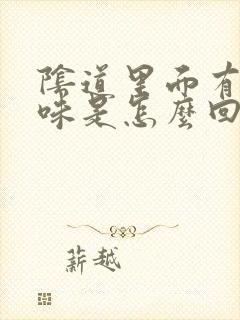 陰道里面有
味是怎麼回
薪越